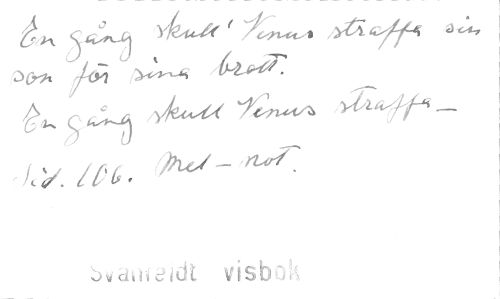 En gång skull' Venus straffa sin
son för sina brott.
En gång skull Venus straffa –
Sid. 106. Mel – not.
Svanfeldt visbok